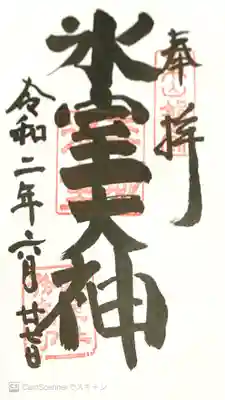 奉拝
氷室天神
令和二年六月廿七日
CamScannerでスキャン